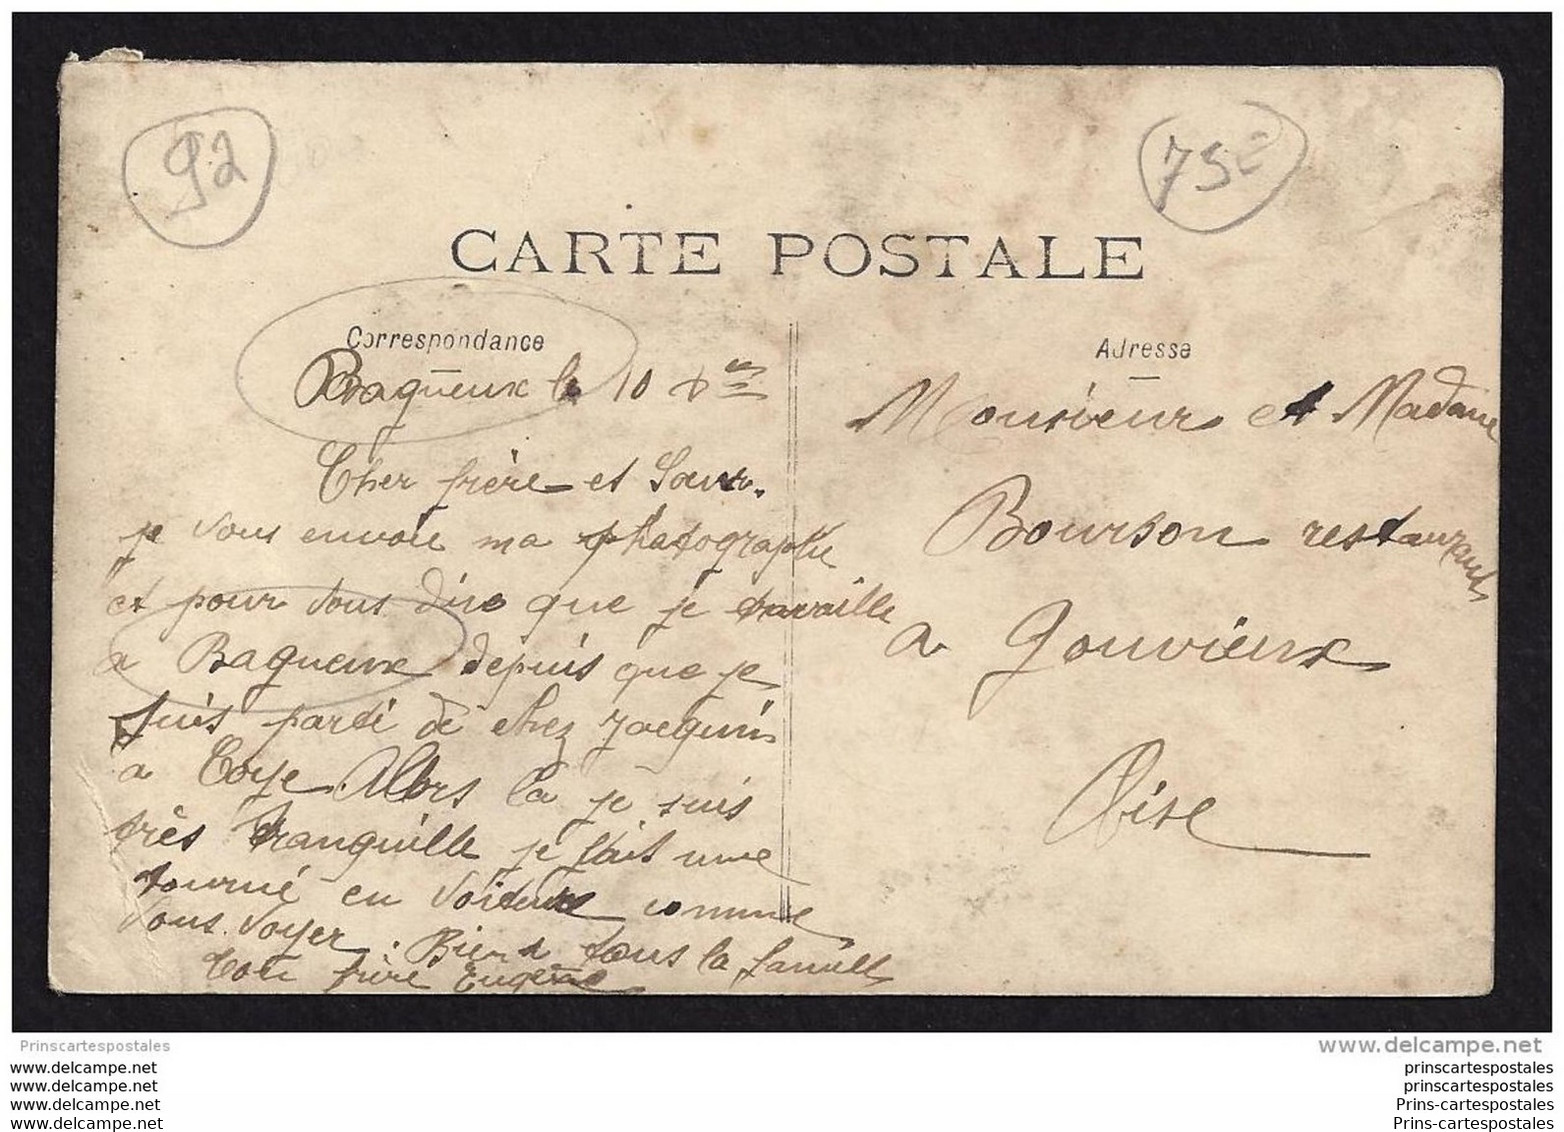 92
75E
CARTE POSTALE
Correspondance
Bagneux le 10 Xbre
Cher frère et Soeur.
je vous envoie ma photographie
et pour vous dire que je travaille
a Bagneux depuis que je
suis parti de chez Jacquin
a Coye Alors la je suis
très tranquille je fait une
tourné en voiture comme
vous voyer. Bien a tous la famille
Ton frère Eugène
Adresse
Monsieur et Madame
Bourson restaurant
a Gouvieux
Oise
Prinscartespostales
www.delcampe.net
www.delcampe.net
www.delcampe.net
www.delcampe.net
www.delcampe.net
prinscartespostales
prinscartespostales
Prins-cartespostales
Prins-cartespostales